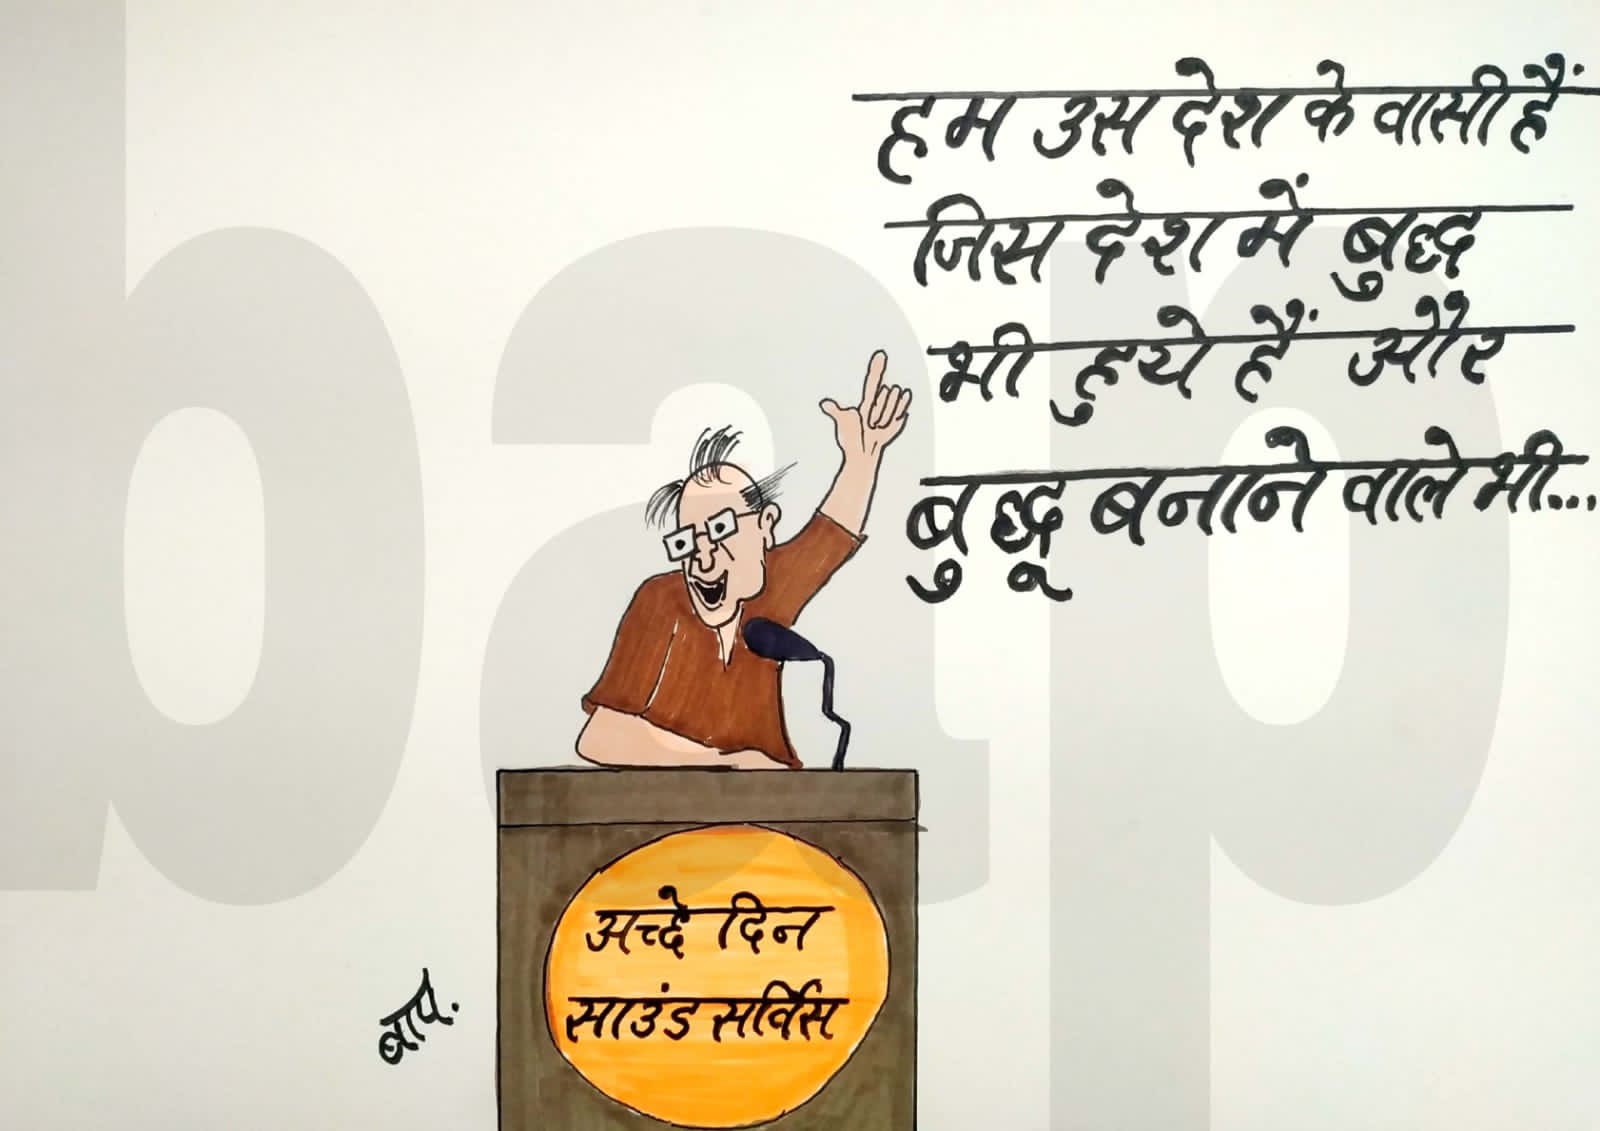 हम उस देश के वासी हैं
जिस देश में बुद्ध
भी हुये हैं और
बुद्धू बनाने वाले भी...
अच्छे दिन
साउंड सर्विस
बाप.
bap